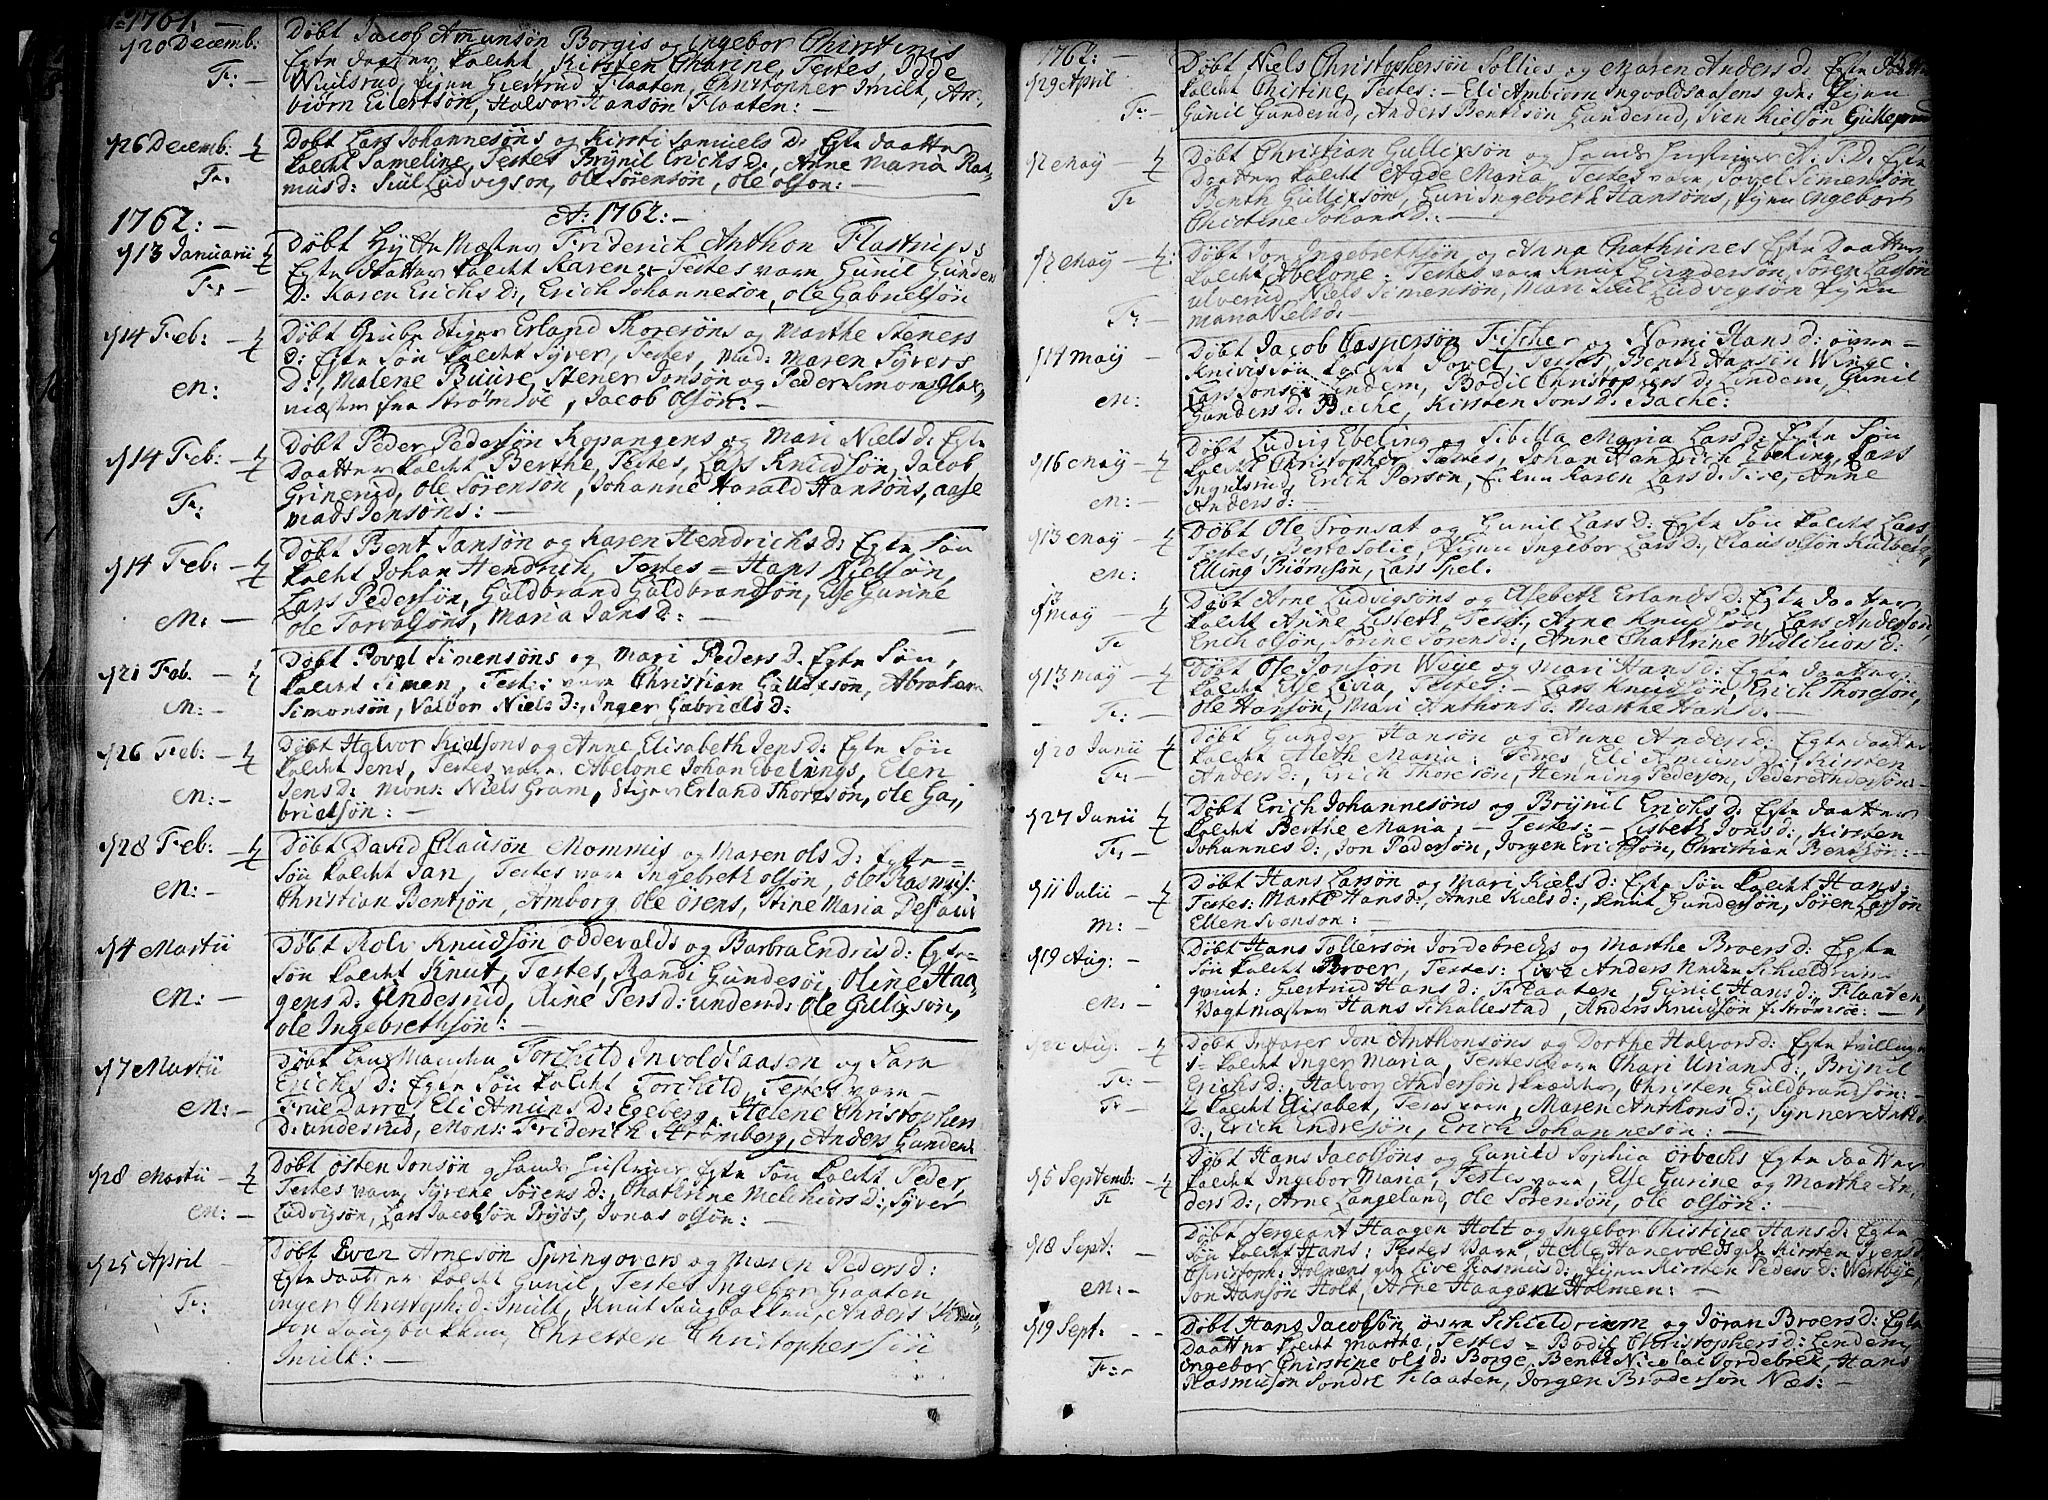 1761:
20 Decemb:
Fr: —
Døbt Jacob Amunsøn Borgis og Ingebor Christinis
Egte daatter kalcht Kirsten Chatrine, Testes, Idde
Wiulsrud, Pigen Giertrud Flaaten, Christopher Smilt, An-
biørn Eilertsøn, Halvor Hansøn Flaaten: —
26 Decemb:
Fr:
Døbt Lars Johannesøns og Kirsti Samuels D: Egte daatter
kalcht Sameline, Testes Brynil Erichs d:, Anne Maria Ras-
mus d: Siul Ludvigsøn, Ole Sørensøn, Ole Olsøn: —
1762: —
A: 1762: —
13 Januarii
Fr: —
Døbt Hytte Mæster Friderich Anthon Flastrups
Egte daatter kalcht Karen, Testes vare Gunil Gunders
D: Karen Erichs D:, Erich Johannesøn, Ole Gabrielsøn
14 Feb: —
M: —
Døbt Grube Stiger Erland Thoresøns og Marthe Steners
d: Egte Søn kalcht Syver, Testes, Mad: Maren Syvers
D:, Malene Buure, Stener Jonsøn og Peder Simons Glas-
mæster fra Strømsøe, Jacob Olsøn: —
14 Feb: —
Fr:
Døbt Peder Pedersøn Kopangens og Mari Niels d: Egte
Daatter kalcht Berthe, Testes, Lars Knudsøn, Jacob
Grinerud, Ole Sørensøn, Johanne Harald Hansøns, Aase
Mads Jensøns: —
14 Feb: —
M: —
Døbt Bent Jansøn og Karen Hendrichs d: Egte Søn
kalcht Johan Hendrich, Testes = Hans Nielsøn,
Lars Pedersøn, Guldbrand Guldbrandsøn, Else Gurine
Ole Torvalsøns, Maria Jans d: —
21 Feb. —
M: —
Døbt Povel Simensøns og Mari Peders d. Egte Søn,
kalcht Simen, Test: vare Christian Gulliksøn, Abraham
Simonsøn, Valbor Niels D:, Inger Gabriels D:
26 Feb: —
M: —
Døbt Halvor Kielsøns og Anne Elisabeth Jens d: Egte Søn
kalcht Jens, Testes vare Abelone Johan Ebelings, Elen
Jens d: Mons: Niels Gram, Stiger Erland Thoresøn, Ole Ga-
brielsøn: —
28 Feb: —
M: —
Døbt David Clausøn Mommis og Maren Ols D: Egte
Søn kalcht Jan, Testes vare Ingebreth Olsøn, Ole Rasmus:
Christian Bentsøn, Amborg Ole Ørens, Stine Maria
4 Martii
M: —
Døbt Rolv Knudsøn Oddevalds og Barbra Endris d: Egte
Søn kalcht Knut, Testes, Randi Gundesøi, Oline Haa-
gens d: Undesrud, Eline Pers d: Undersd: Ole Gulixsøn,
Ole Ingebrethsøn: —
7 Martii
M: —
Døbt Torchild Involdsaasen og Sara
Erichs d: Egte Søn kalcht Torchild, Testes vare —
Frue Darre, Eli Amuns D: Egeberg, Helene Christophers
D: Undesrud, Mons: Friderich Strømberg, Anders Gunders
28 Martii —
M: —
Døbt Østen Jonsøn og hands Hustrues Egte Søn kalcht Peder,
Testes vare Syrene Sørens d:, Chathrine Melchiors d:, Syver
Ludvigsøn, Lars Jacobsøn Pryds, Jonas Olsøn: —
25 April —
Fr:
Døbt Even Arnesøn Springovers og Maren Peders d:
Egte daatter kalcht Gunil, Testes Ingebor Graaten
Inger Christoph: d: Smilt, Knut Saugbakken, Anders Knud-
søn Saugbakken, Christen Christophersøn
Smilt: —
1762: —
29 April
Fr —
Døbt Niels Christophersøn Sollies og Maren Anders d: Egte
kalcht Chistine, Testes: — Eli Ambiørn Ingvoldsaasens
Gunil Gunderud, Anders Bentsøn Gunderud, Sven Kielsøn
2 May —
Fr
Døbt Christian Gullixsøn og hands Hustrues A. P. D: Egte
Daatter kalcht Aade Maria, Testes vare, Povel Simensøn
Benth Gullixsøn, Guri Ingebreth Hansøns, Pigen Ingebor
Chistine Johans d: —
2 May —
Fr —
Døbt Jon Ingebrethsøn, og Anna Chathrines Egte Daatter
kalcht Abelone: Testes vare Knut Gundersøn, Søren Larsøn
Ulverud, Niels Simensøn, Mari Siul Ludvigsøn Pigen
Maria Niels d: —
14 May —
M: —
Døbt Jacob Caspersøn Fischer og Nomi Hans d:
kalcht Povel, Testes, Benth Hansøn Winge
Lars Jonsøn Lindem, Bodil Christophers d: Lindem, Gunil
Gunders d: Bache, Kirsten Jons D: Bache:
16 May —
M: —
Døbt Ludvig Ebeling og Sibilla Maria Lars d: Egte Søn
kalcht Christopher Testes, Johan Hendrich Ebeling, Lars
Ingulsrud, Erich Persøn, Karen Lars d: Anne
Anders d:
13 May —
M:
Døbt Ole Tronsat og Gunil Lars d: Egte Søn kalcht Lars,
Testes, Berte Solie, Pigen Ingebor Lars d:, Claus Olsøn Kulberg
Elling Biørnsøn, Lars Spel.
May —
Fr
Døbt Arne Ludvigsøns og Elsebeth Erlands d: Egte daatter
kalcht Anne Lisbeth, Test: Arne Knudsøn, Lars Andersøn,
Erich Olsøn, Sørine Sørens d:, Anne Chathrine Melchiors d:
13 May —
Fr: —
Døbt Ole Jonsøn Weye og Mari Hans d: Egte daatter
kalcht Else Livia, Testes: — Lars Knudsøn, Erich Thoresøn,
Ole Hansøn, Mari Anthons d: Marthe Hans d. —
20 Junii
Fr —
Døbt Gunder Hansøn og Anne Anders d: Egte daatter
kalcht Aleth Maria: Testes, Eli Amuns d:, Kirsten
Anders d:, Erich Thoresøn, Henning Pedersøn, Peder Andersøn: —
27 Junii
Fr: —
Døbt Erich Johannesøns og Brynil Erichs d: Egte daatter
kalcht Berthe Maria, — Testes: — Lisbeth Jons d:, Kirsten
Johannes d:, Jon Pedersøn, Jørgen Erichsøn, Christian Bentsøn: —
11 Julii —
M: —
Døbt Hans Larsøn og Mari Kiels d: Egte Søn kalcht Hans:
Testes: Marte Hans d:, Anne Kiels d:, Knut Gundersøn, Søren Larsøn
Ellen Svensøn: —
19 Aug: —
M: —
Døbt Hans Tollersøn Jordebrechs og Marthe Broers d: Egte
Søn kalcht Broer, Testes: Live Anders Neden Schieldrum
Giertrud Hans d: Flaaten, Gunil Hans d: Flaaten,
Vagtmæster Hans Schallestad, Anders Knudsøn f: Strømsøe: —
22 Aug:
Fr: —
Fr —
Døbt Jon Anthonsøns og Dorthe Halvors d: Egte tvillinger
1 kalcht Inger Maria, Testes vare Chari Urians d:, Brynil
Erichs d:, Halvor Andersøn Skrædder, Christen Guldbrandsøn: —
2 kalcht Elisabet, Testes vare, Maren Anthons d:, Synner Anth:
D:, Erich Endresøn, Erich Johannesøn: —
5 Septemb:
Fr
Døbt Hans Jacobsøns og Gunild Sophia Orbechs Egte daatter
kalcht Ingebor Maria, Testes vare, Else Gurine og Marthe An-
ders d:, Arne Langeland, Ole Sørensøn, Ole Olsøn: —
18 Sept:
M: —
Døbt Sergeant Haagen Holt og Ingebor Christine Hans d: Egte
Søn kalcht Hans: Testes vare, Helle Hanevolds Kirsten Svens d
Christoph: Holmens Live Rasmus d: Pigen Kirsten Peders d: Westbye,
Jon Hansøn Holt, Arne Haagen Holmen: —
19 Sept: —
Fr: —
Døbt Hans Jacobsøn Schieldrum og Jøran Broers d: Egte
Daatter kalcht Marthe, Testes = Bodil Christophers d: Lindem,
Ingebor Christine Ols d: Borge, Benth Nicolai Jordebrek, Hans
Rasmusøn Søndre Flaaten, Jørgen Brodersøn Næs: —